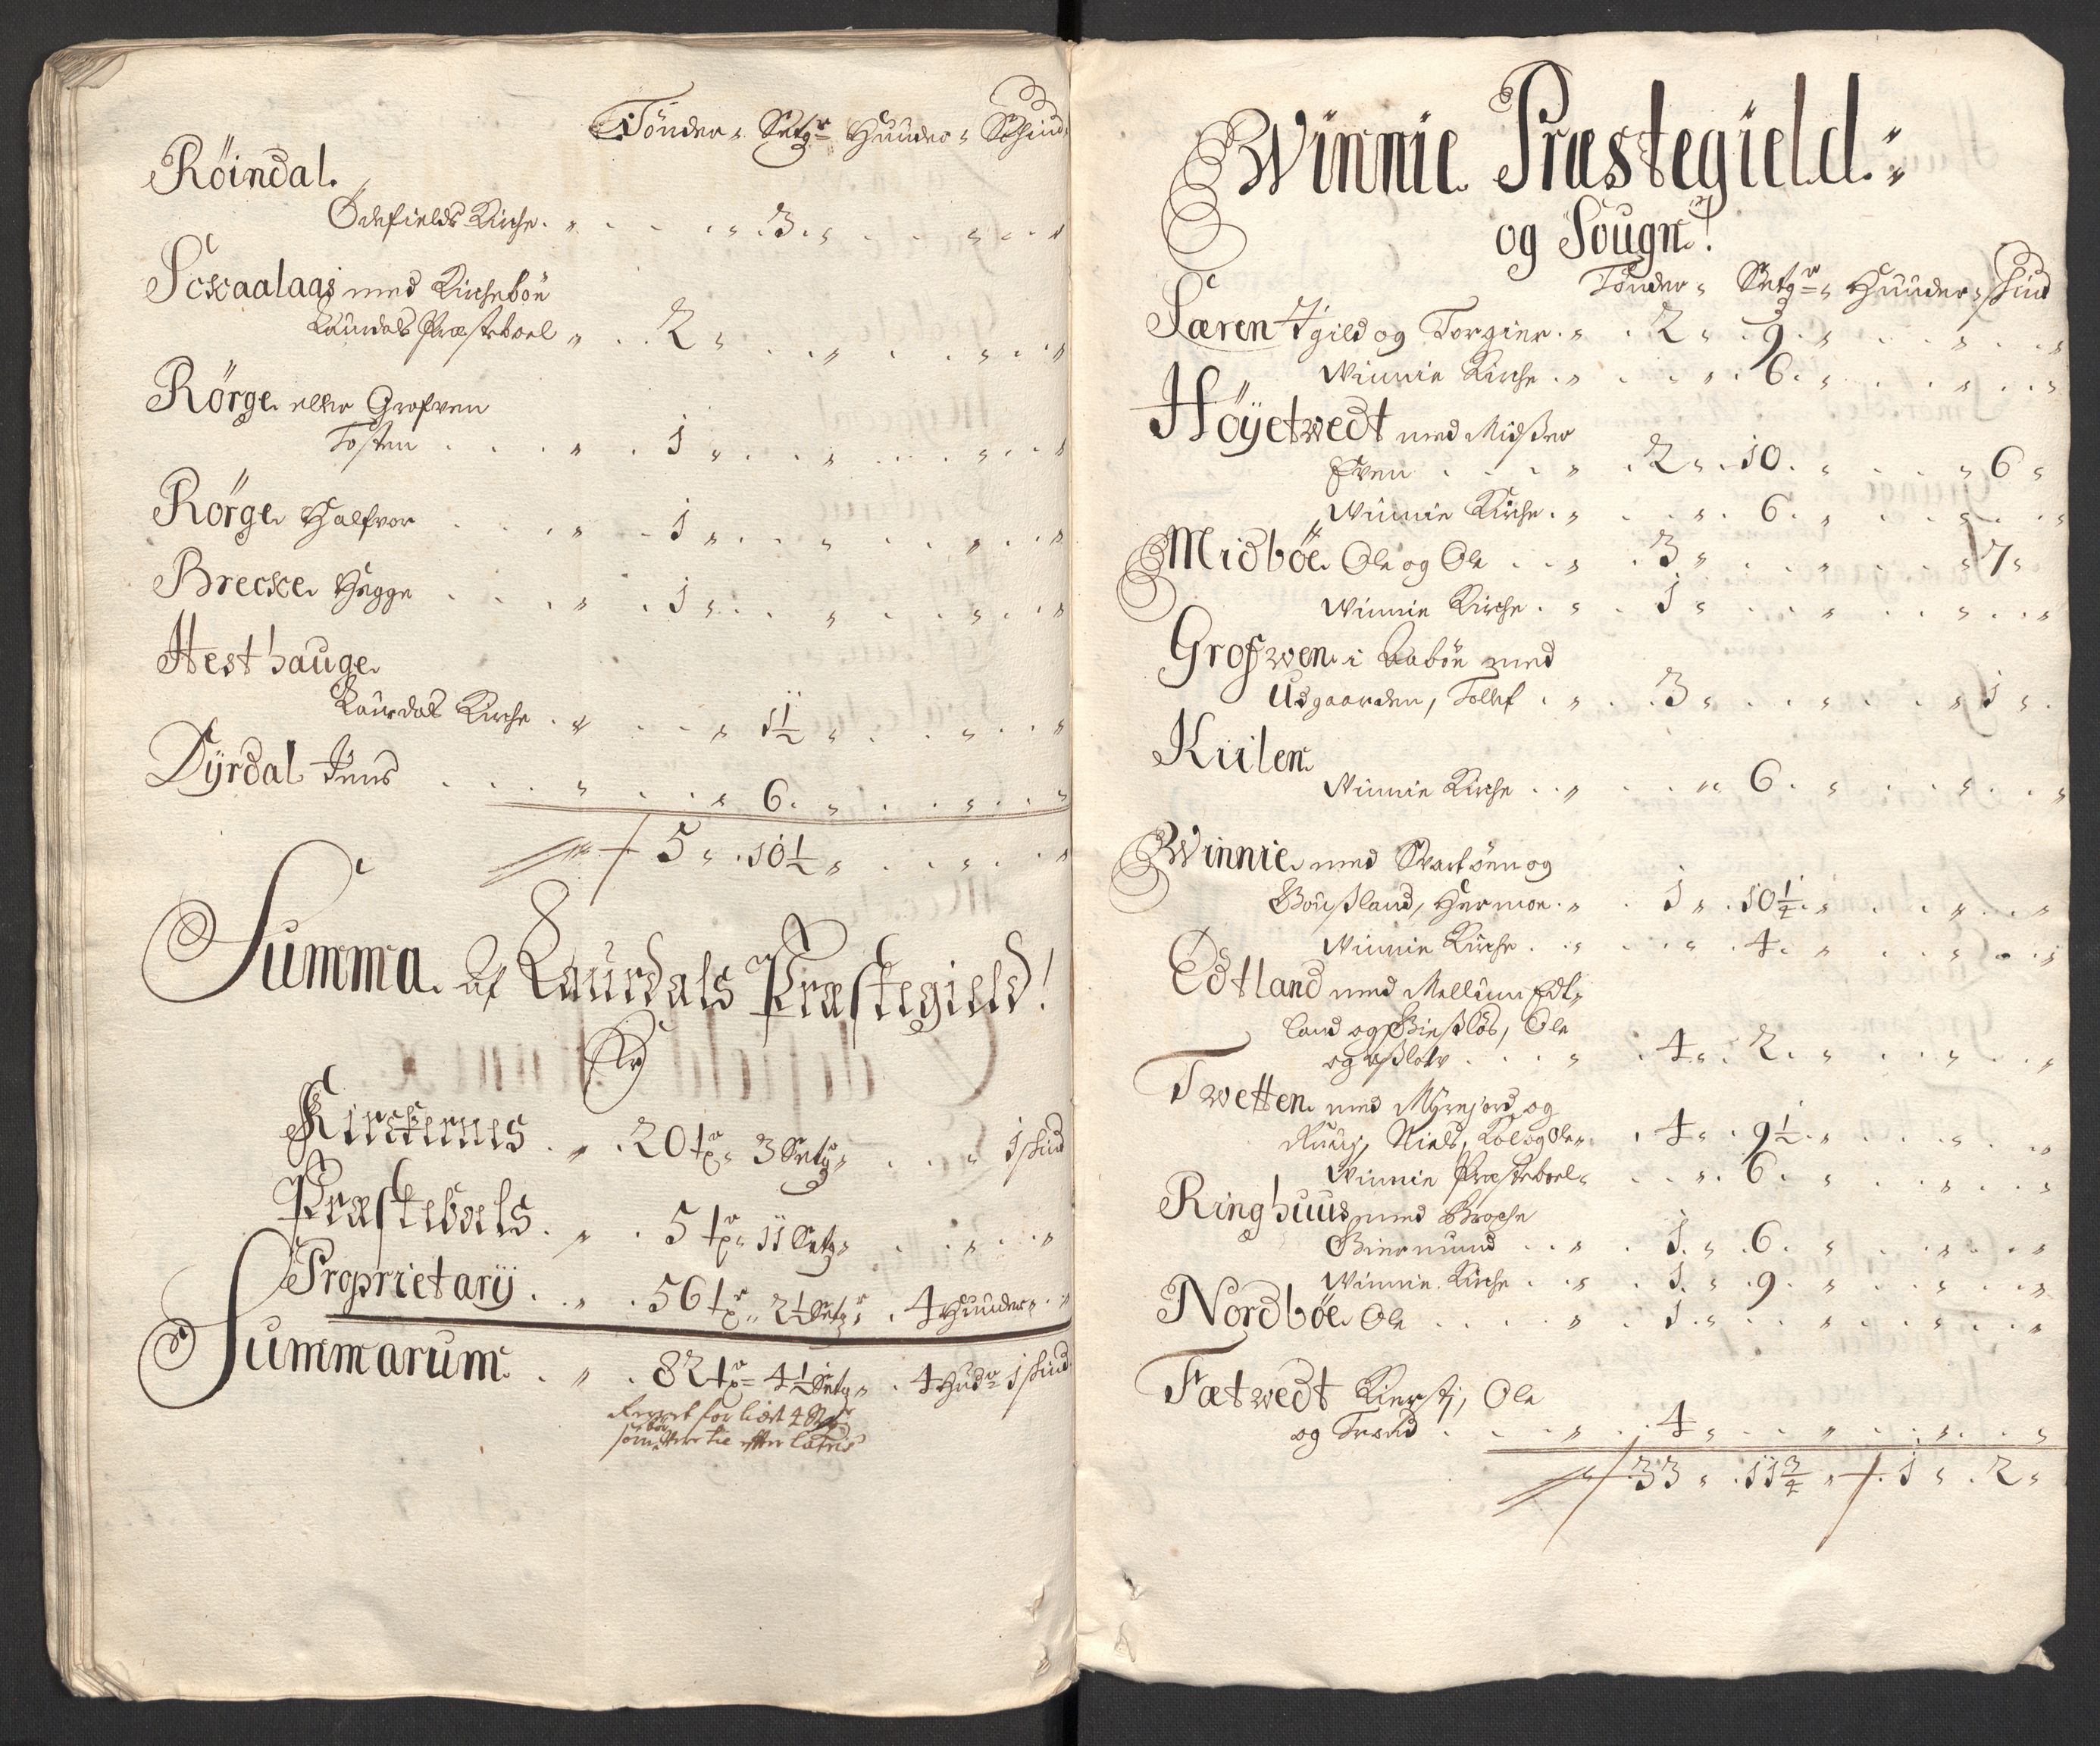 Tönder Setgr Huuder Schind
Röindal.
Ödefields Kirche 3
Schaalaas med Kirchebön
Laurdals Præsteboel 2
Rörge eller Grofven
Tosten 1
Rörge Halfvor 1
Brecke Hegge 1
Hesthauge
Laurdals Kirche 1½
Dyrdal Jens 6
5 10½
Summa af Laurdals Præstegield!
Er
Kirckernes 20 tr 3 Setgr 1 skind
Præstebols 5 tr 11 Setgr
Proprietarij 56 tr 2½ Setgr 4 Huuder
Summarum 82 tr 4½ Setgr 4 Hudr 1 skind
Winnie Præstegield
og Sougn!
Tönder Setgr Huuder skind
Særen gild og Torgier 2 9
Winnie Kirche 6
Höyetwedt med Midsser
Even 2 10 6
Winnie Kirche 6
Midböe Ole og Ole 3 7
Winnie Kirche 1
Grofwen i Labön med
Udgaarden, Tollef 3 1
Kiilen
Winnie Kirche 6
Winnie med Svartöen og
Bousland, Hermon 1 10¼
Winnie Kirche 4
Edtland med Mellum Edt-
land og Ole
4 2
Twetten med Myrejord og
Ruug, Niels, Kol og Ole 4 9½
Winnie Præsteboel 6
Ringhuus med Broche
Biermund 1 6
Winnie Kirche 1 9
Nordböe Ole 1
Fætwedt Kiersti, Ole
og Trond 4
33 11¾ 1 2